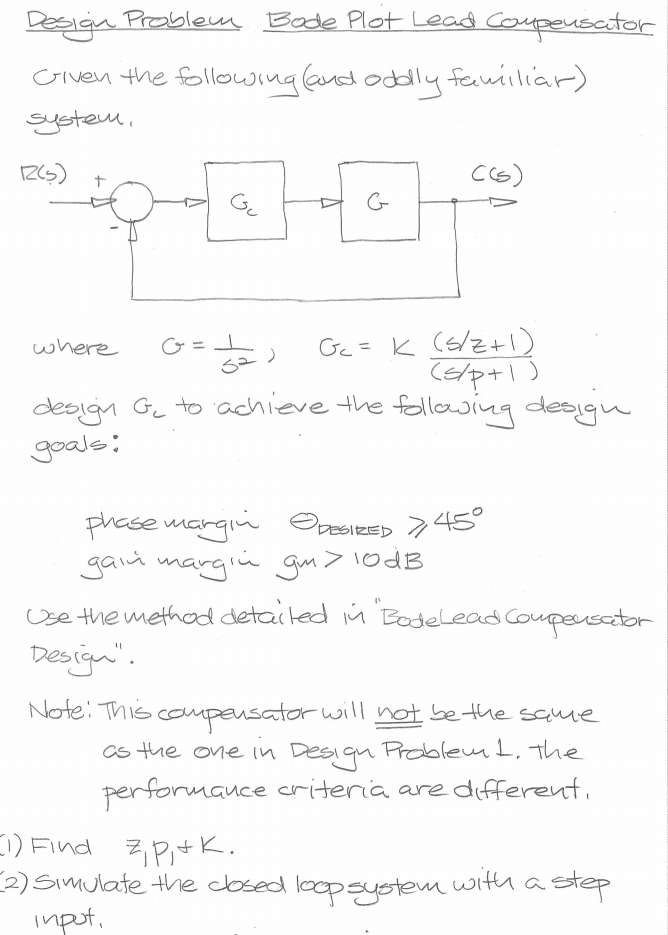 Design Problem Bode Plot Lead Compensator
Given the following (and oddly familiar)
system.
R(s) + Gc G C(s)
-
where G = 1/s², Gc = K (s/z+1)/(s/p+1)
design Gc to achieve the following design
goals:
phase margin ΘDESIRED ≥ 45°
gain margin gm > 10dB
Use the method detailed in "Bode Lead Compensator
Design".
Note: This compensator will not be the same
as the one in Design Problem 1. The
performance criteria are different.
(1) Find z, p, + K.
(2) Simulate the closed loop system with a step
input.